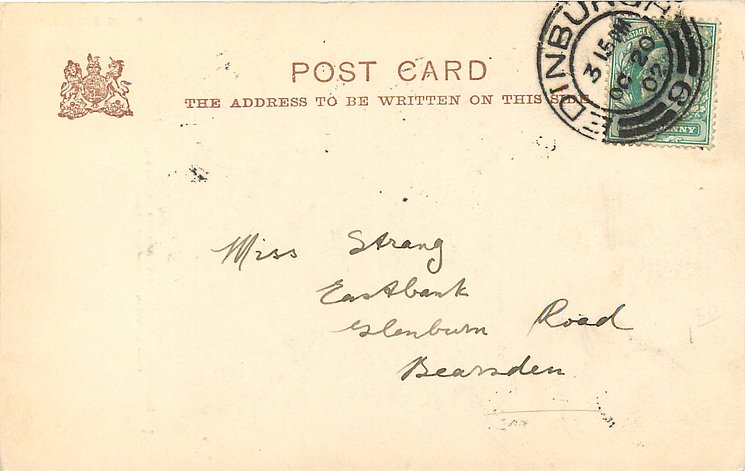 POST CARD
THE ADDRESS TO BE WRITTEN ON THIS SIDE
EDINBURGH
3 15 PM
OC 20
02
9
Miss Strang
Eastbank
Glenburn Road
Bearsden